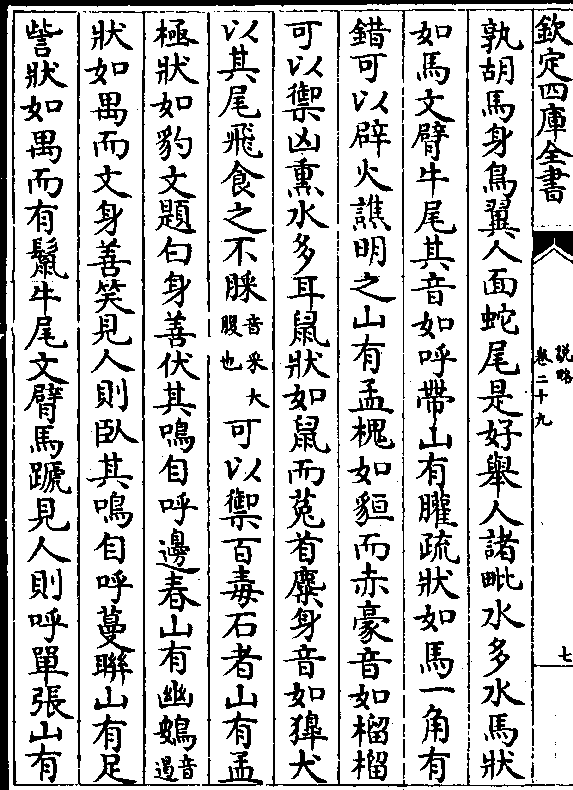 欽定四庫全書
說略
卷二十九
七
孰胡馬身鳥翼人面蛇尾是好舉人諸毗水多水馬狀
如馬文臂牛尾其音如呼帶山有䑏疏狀如馬一角有
錯可以辟火譙明之山有孟槐如貆而赤豪音如榴榴
可以禦凶熏水多耳鼠狀如鼠而菟首麋身音如獋犬
以其尾飛食之不䐆音采大腹也可以禦百毒石者山有孟
極狀如豹文題白身善伏其鳴自呼邊春山有幽鴳音遏
狀如禺而文身善笑見人則臥其鳴自呼蔓聯山有足
訾狀如禺而有鬛牛尾文臂馬蹏見人則呼單張山有